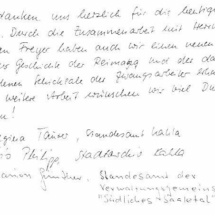 danken uns herzlich für die heutige
. Durch die Zusammenarbeit mit Herrn
en Freyer haben auch wir einen neuen
der Geschichte der Reimahg und der da
denen Schicksale der Zwangsarbeiter
weitere Arbeit wünschen wir viel
n!
Tänzer, Standesamt Kahla
Philipp Stadtarchiv Kahla
Günther, Standesamt der
Verwaltungsgemeins
"Südliches Saaletal"